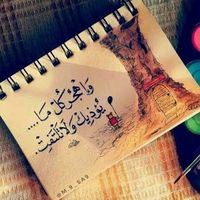 واهجر كل ما....
يؤذيك ولا تلتفت.